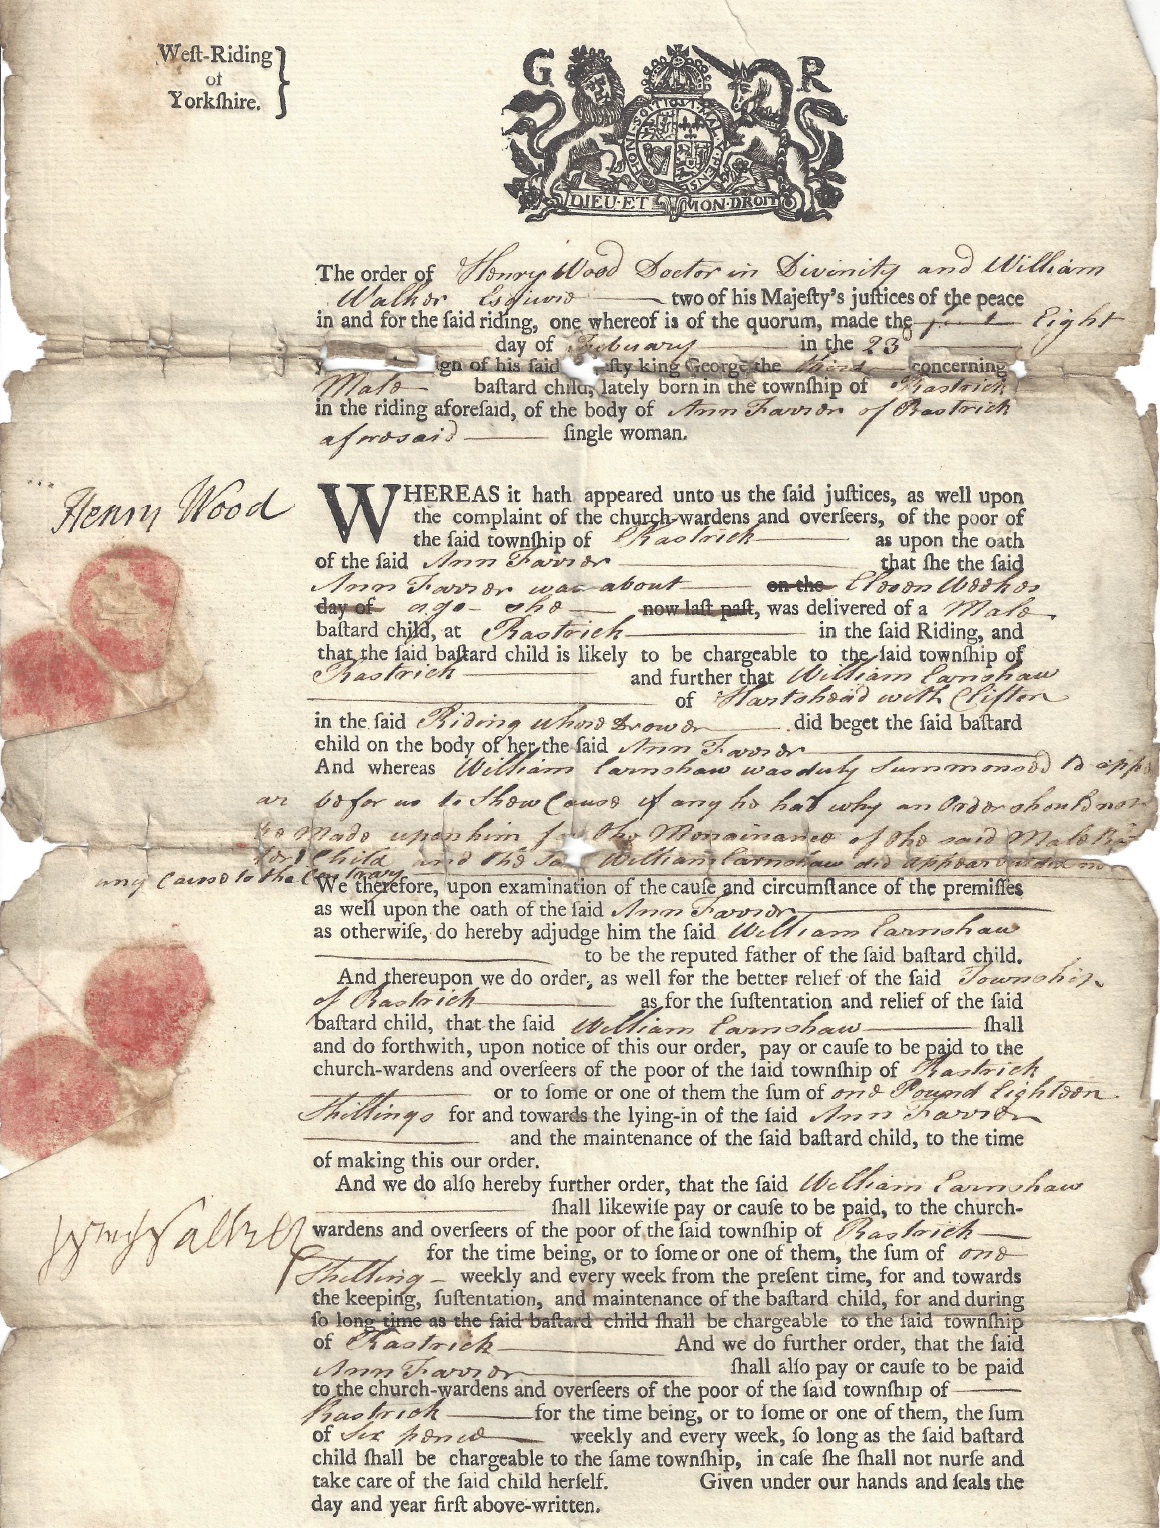 Weſt-Riding
of
Yorkſhire.
G R
HONI·SOIT·QUI·MAL·Y·PENSE
DIEU·ET MON·DROIT
The order of Henry Wood Doctor in Divinity and William
Walker Esquire two of his Majeſty's juſtices of the peace
in and for the ſaid riding, one whereof is of the quorum, made the Eight
day of February in the 23
ign of his ſaid eſty king George the third concerning
Male baſtard child, lately born in the townſhip of Rastrick
in the riding aforeſaid, of the body of Ann Farrer of Rastrick
aforesaid ſingle woman.
Henry Wood
WHEREAS it hath appeared unto us the ſaid juſtices, as well upon
the complaint of the church-wardens and overſeers, of the poor of
the ſaid townſhip of Rastrick as upon the oath
of the ſaid Ann Farrer that ſhe the ſaid
Ann Farrer was about on the Eleven Weekes
day of ago she now laſt paſt, was delivered of a Male
baſtard child, at Rastrick in the ſaid Riding, and
that the ſaid baſtard child is likely to be chargeable to the ſaid townſhip of
Rastrick and further that William Earnshaw
of Hartshead with Clifton
in the ſaid Riding did beget the ſaid baſtard
child on the body of her the ſaid Ann Farrer
And whereas William Earnshaw was duly Summonsed to appe
ar befor us to Shew Cause if any he had why an Order should not
be Made upon him for the of the said Male Ba
Child and the William Earnshaw did appear
any Cause to the Contrary
We therefore, upon examination of the cauſe and circumſtance of the premiſſes
as well upon the oath of the ſaid Ann Farrer
as otherwiſe, do hereby adjudge him the ſaid William Earnshaw
to be the reputed father of the ſaid baſtard child.
And thereupon we do order, as well for the better relief of the ſaid Township
of Rastrick as for the ſuſtentation and relief of the ſaid
baſtard child, that the ſaid William Earnshaw ſhall
and do forthwith, upon notice of this our order, pay or cauſe to be paid to the
church-wardens and overſeers of the poor of the ſaid townſhip of Rastrick
or to ſome or one of them the ſum of one Pound Eighteen
Shillings for and towards the lying-in of the ſaid Ann Farrer
and the maintenance of the ſaid baſtard child, to the time
of making this our order.
And we do alſo hereby further order, that the ſaid William Earnshaw
ſhall likewiſe pay or cauſe to be paid, to the church-
wardens and overſeers of the poor of the ſaid townſhip of Rastrick
Wm Walker
for the time being, or to ſome or one of them, the ſum of one
Shilling weekly and every week from the preſent time, for and towards
the keeping, ſuſtentation, and maintenance of the baſtard child, for and during
ſo long time as the ſaid baſtard child ſhall be chargeable to the ſaid townſhip
of Rastrick And we do further order, that the ſaid
Ann Farrer ſhall alſo pay or cauſe to be paid
to the church-wardens and overſeers of the poor of the ſaid townſhip of
Rastrick for the time being, or to ſome or one of them, the ſum
of Six pence weekly and every week, ſo long as the ſaid baſtard
child ſhall be chargeable to the ſame townſhip, in caſe ſhe ſhall not nurſe and
take care of the ſaid child herſelf. Given under our hands and ſeals the
day and year firſt above-written.